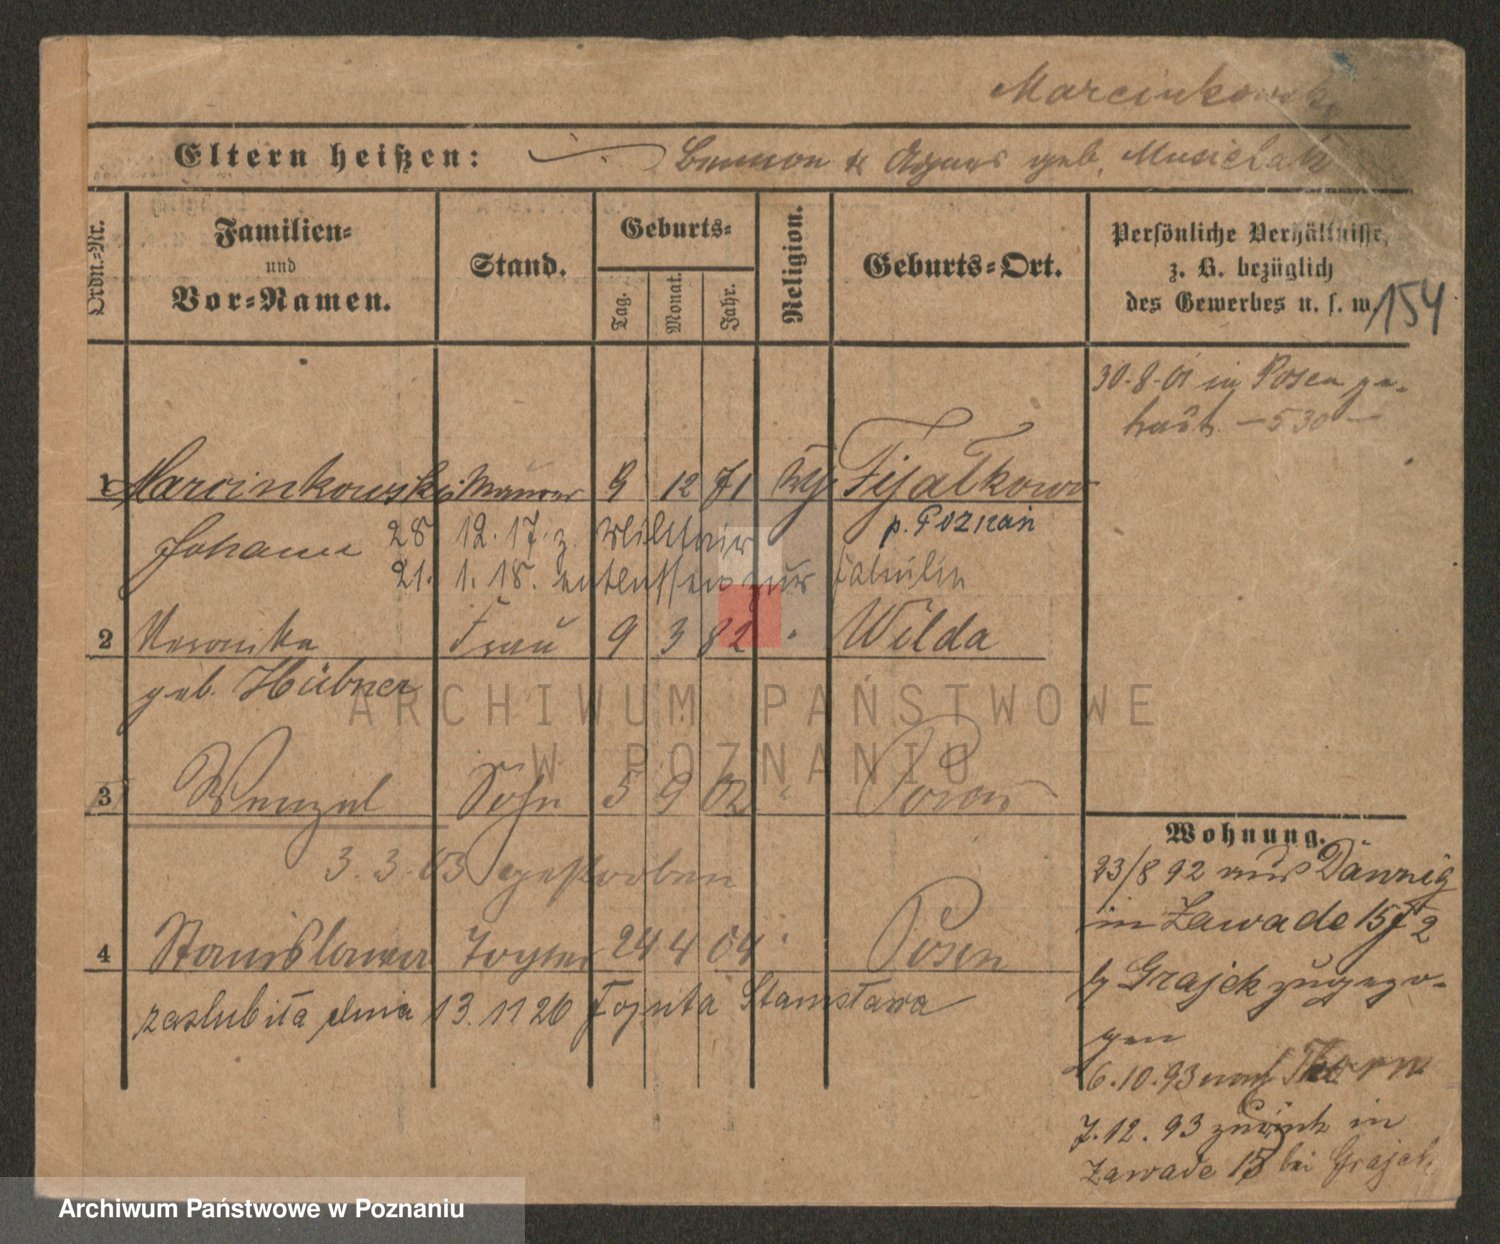 Marcinkowski
Eltern heißen: & Agnes geb. Musielak
Ordn.-Nr.
Familien-
und
Vor-Namen.
Stand.
Geburts-
Tag.
Monat.
Jahr.
Religion.
Geburts-Ort.
Persönliche Verhältnisse,
z. B. bezüglich
des Gewerbes u. s. w.
154
30.8.01 in Posen ge-
traut. — 530 —
1 Marcinkowski Maurer 9 12 71 Fijałkowo
Johann 28 12. 17. z. Militair p. Poznań
21. 1. 18. entlassen zur Familie
2 Veronika Frau 9 3 82 " Wilda
geb. Hübner
3 Wenzel Sohn 5 9 02 " Posen
3. 3. 03 gestorben
4 Stanislawa Tochter 24 4 04 " Posen
zaslubiła dnia 13. 11 26 Fojuta Stanisława
Wohnung.
23/8 92 aus Danzig
in Zawade 15/2
b/ Grajek zugezo-
gen
6.10.93 nach Thorn
7.12.93 zurück in
Zawade 15 bei Grajek
ARCHIWUM PAŃSTWOWE
W POZNANIU
Archiwum Państwowe w Poznaniu